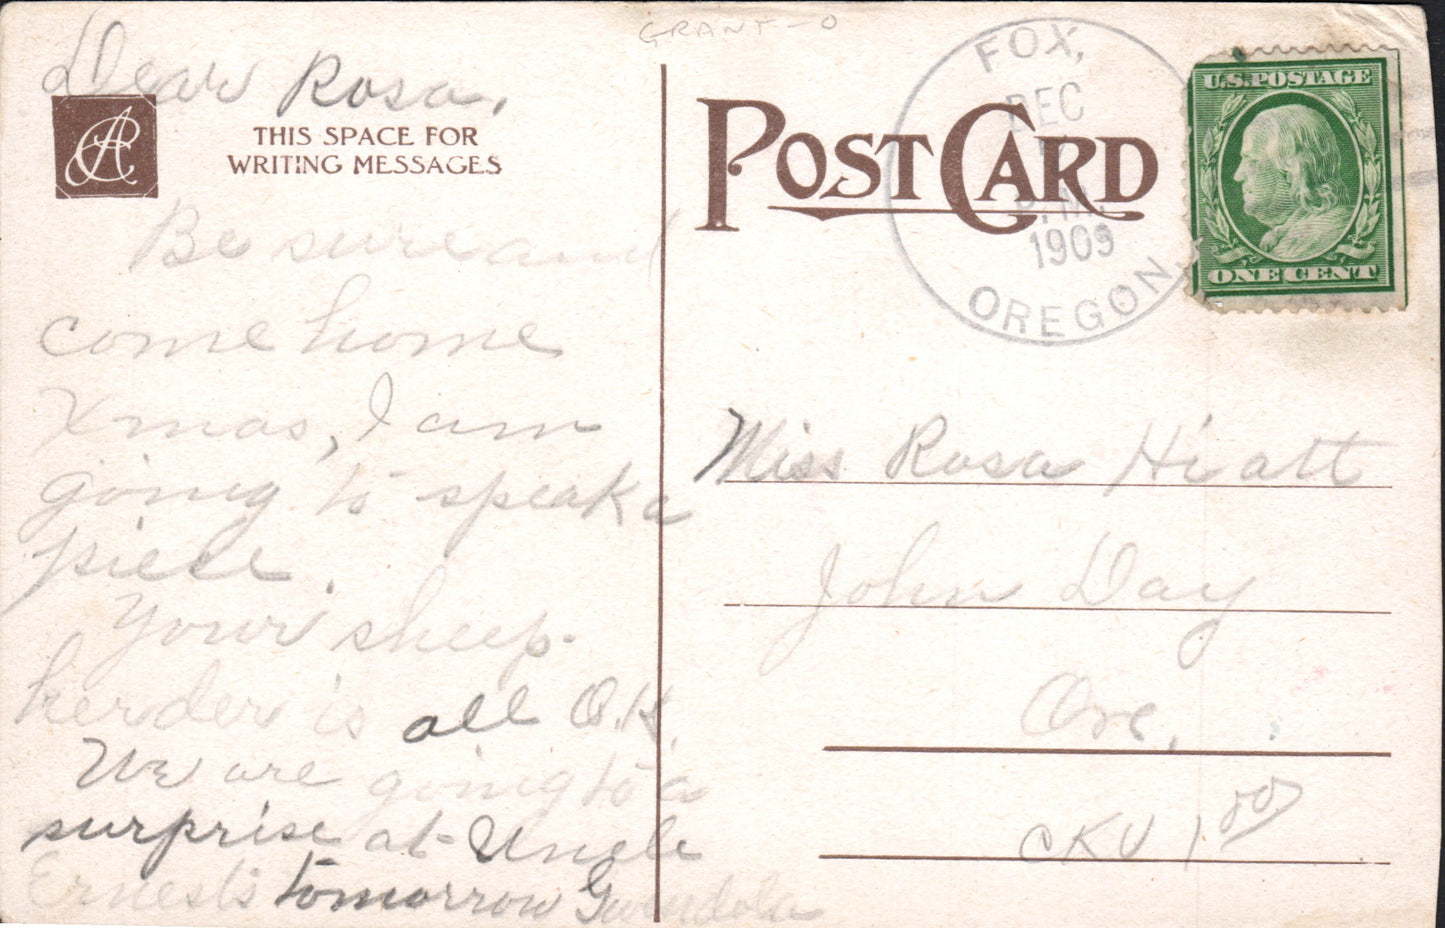 GRANT-O
Dear Rosa,
AC
THIS SPACE FOR
WRITING MESSAGES
Be sure and
come home
Xmas, I am
going to speak a
piece.
Your sheep-
herder is all O.K.
We are going to a
surprise at Uncle
Ernest's tomorrow Gwendola
POST CARD
FOX,
DEC
P.M.
1909
OREGON
U.S. POSTAGE
ONE CENT
Miss Rosa Hiatt
John Day
Ore.
CKU 1.00